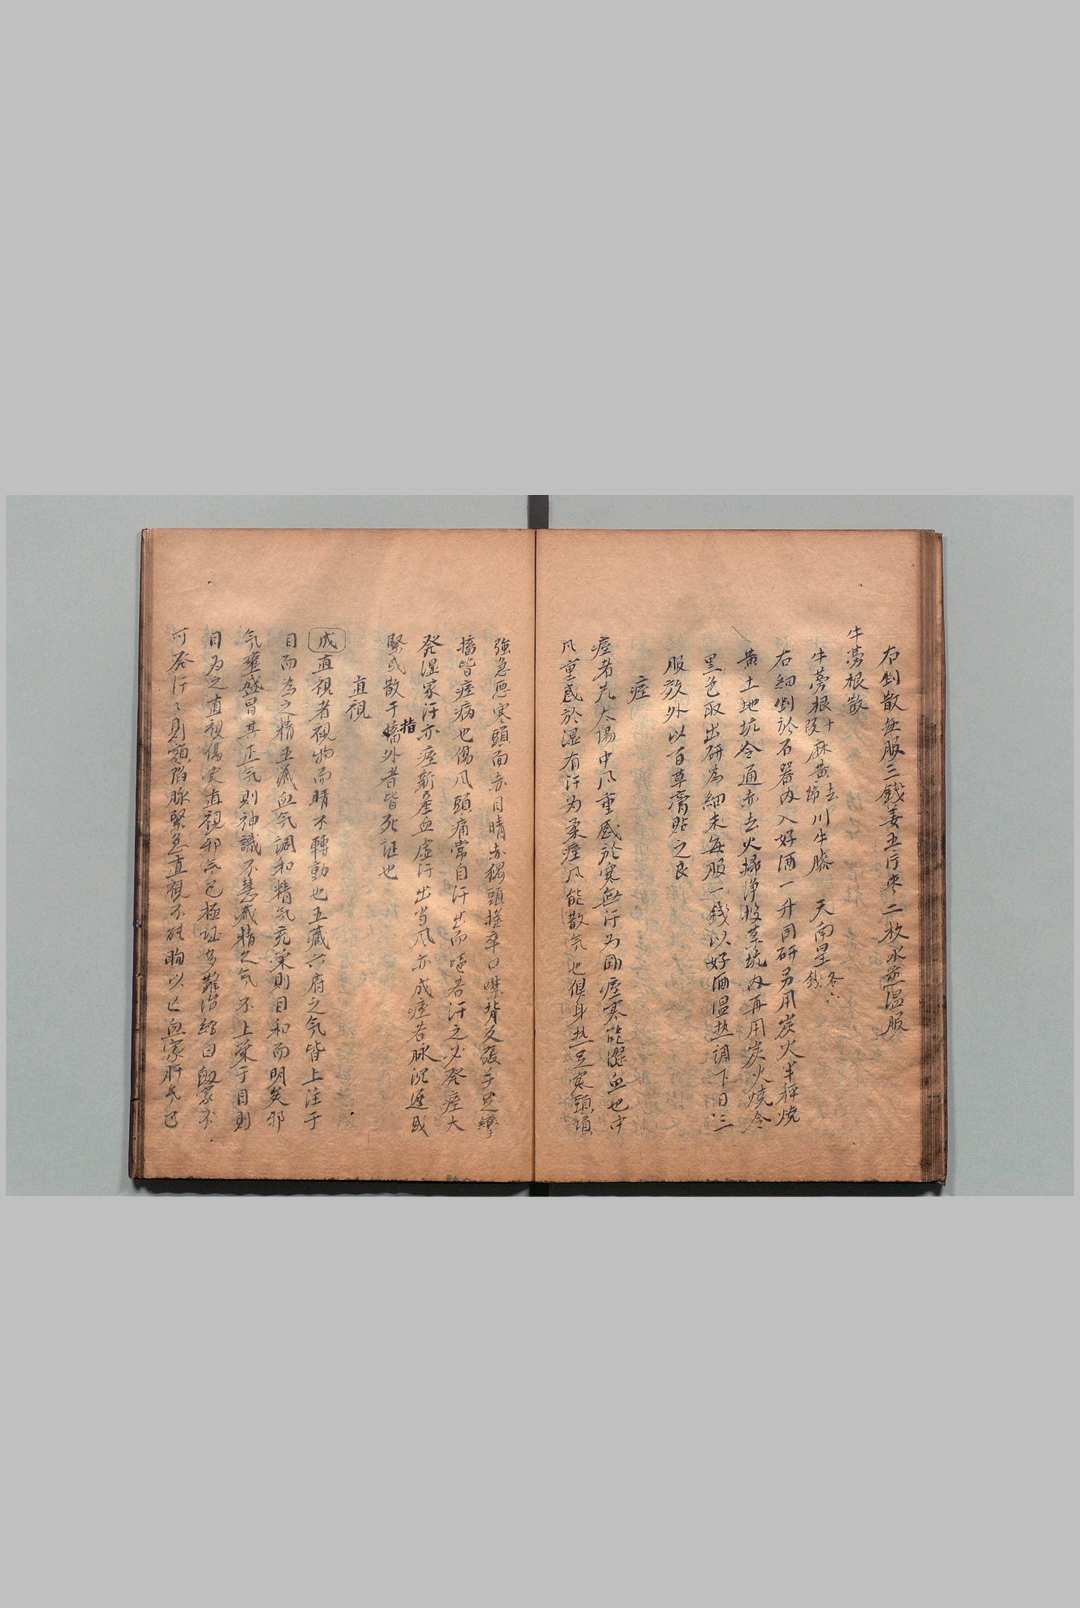 右剉散每服三錢姜五片棗二枚水煎溫服
牛蒡根散
牛蒡根十段麻黄去節川牛膝 天南星各六錢
右細剉於石器内入好酒一升同研另用炭火半秤燒
黄土地坑令通赤去火掃淨投藥坑内再用炭火燒令
黒色取出研為細末每服一錢以好酒温热調下日三
服效外以百草膏貼之良
痙
痙者先太陽中风重感於寒無汗為剛痙寒能澁血也中
风重感於湿有汗为柔痙风能散気也俱身热足寒頸項
強急悪寒頭面赤目睛赤獨頭揺卒口噤背反張手足攣
搐皆痙病也傷风頭痛常自汗出而嘔若汗之必発痙大
発湿家汗亦痙新產血虛汗出当风亦成痙若脉沉遅或
緊或散于指外者皆死证也
直視
成直視者視物而睛不轉動也五藏六府之気皆上注于
目而為之精五藏血気調和精気充榮則目和而明矣邪
気壅盛冒其正気則神識不慧藏精之気不上榮于目則
目为之直視傷寒直視邪気已極证多難治經曰衂家不
可發汗之則額陷脉緊急直視不能眴以亡血家肝気已